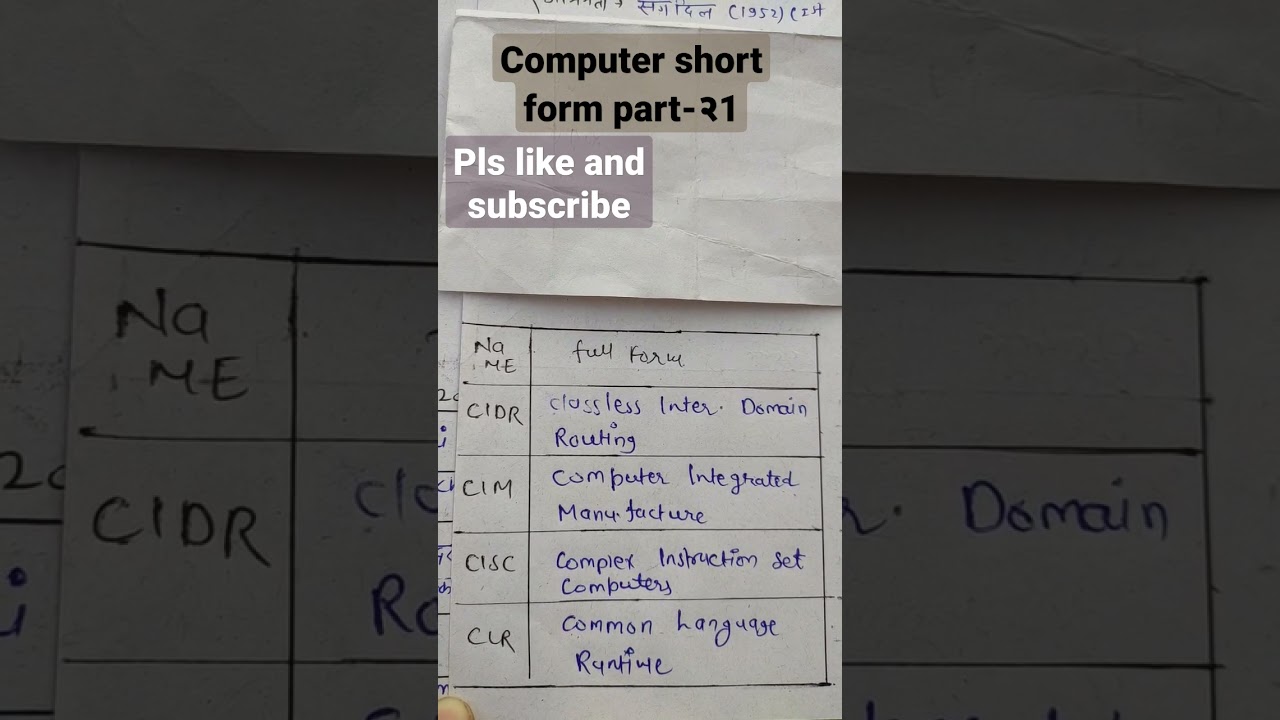 संगदिल (1952) (Ist
Computer short
form part-२1
Pls like and
subscribe
Na
ME
Full Form
CIDR
Classless Inter. Domain
Routing
CIM
Computer Integrated
Manufacture
CISC
Complex Instruction set
Computers
CLR
Common Language
Runtime
Na
ME
CIDR
Domain